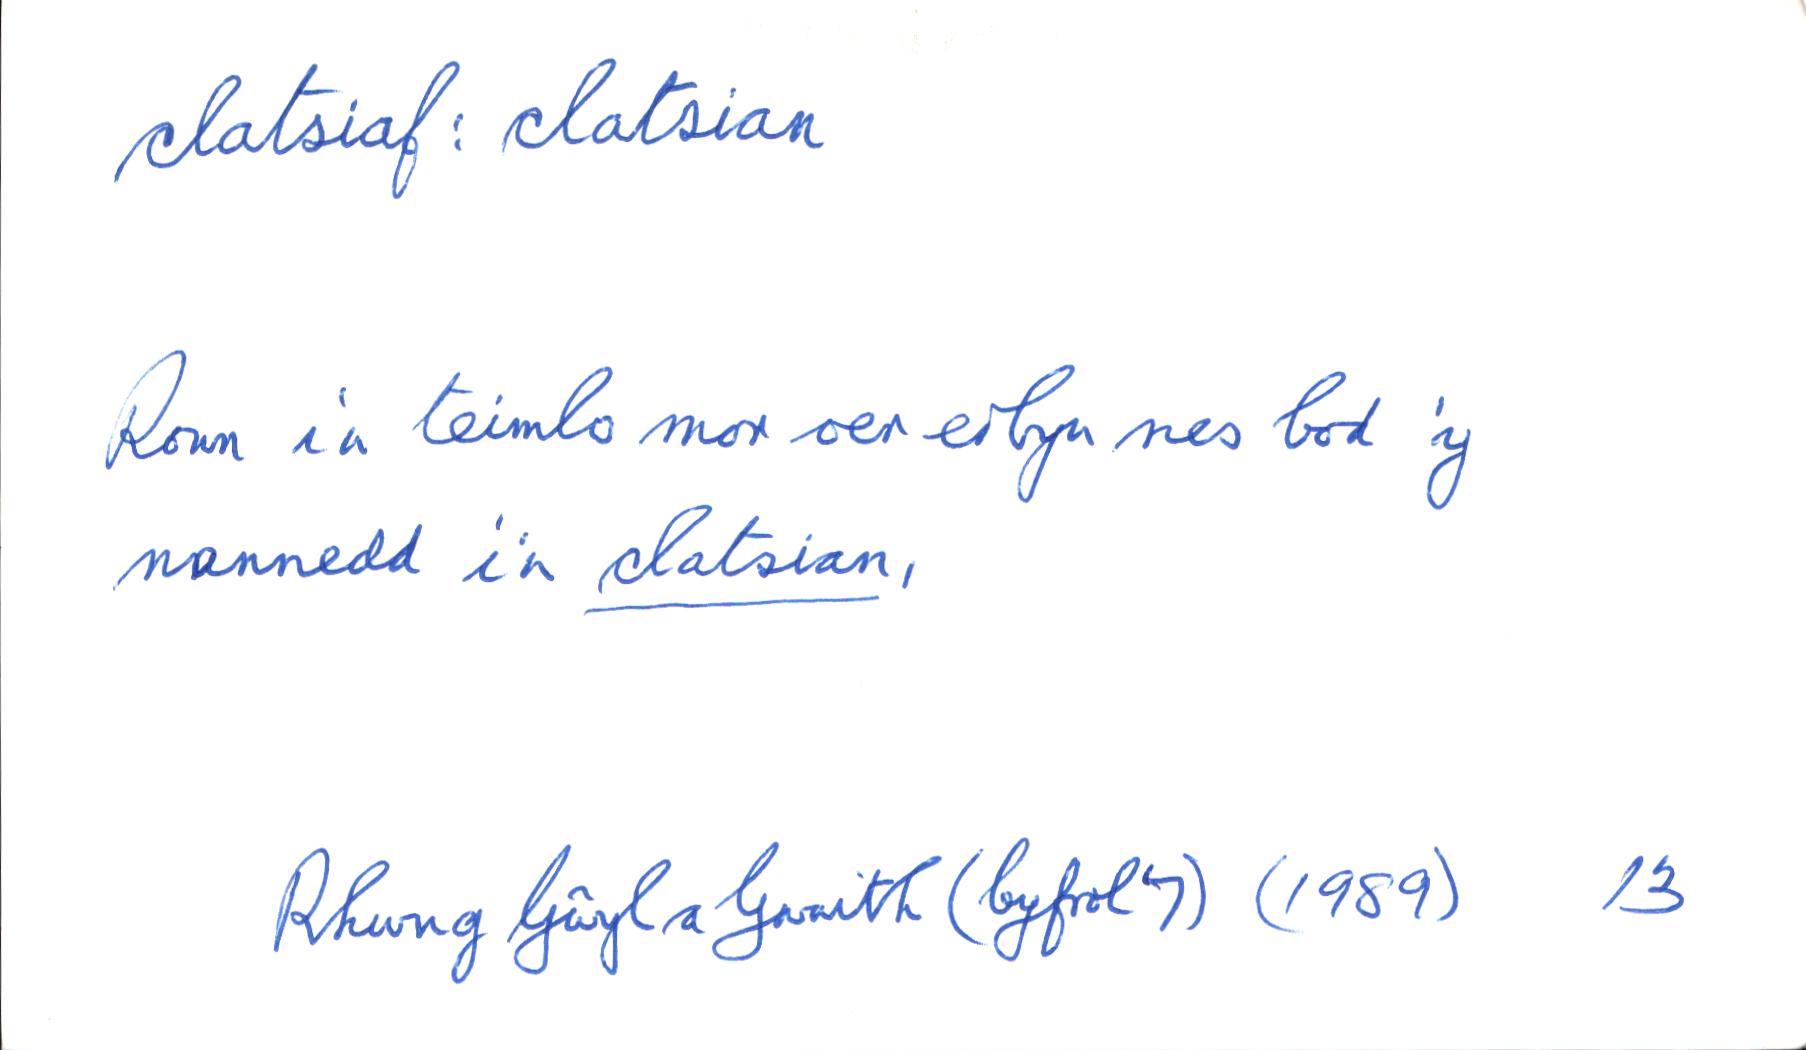 clatsiaf: clatsian
Rown i'n teimlo mor oer erbyn nes bod 'y
nannedd i'n clatsian,
Rhwng Gŵyl a Gwaith (cyfrol 7) (1989) 13